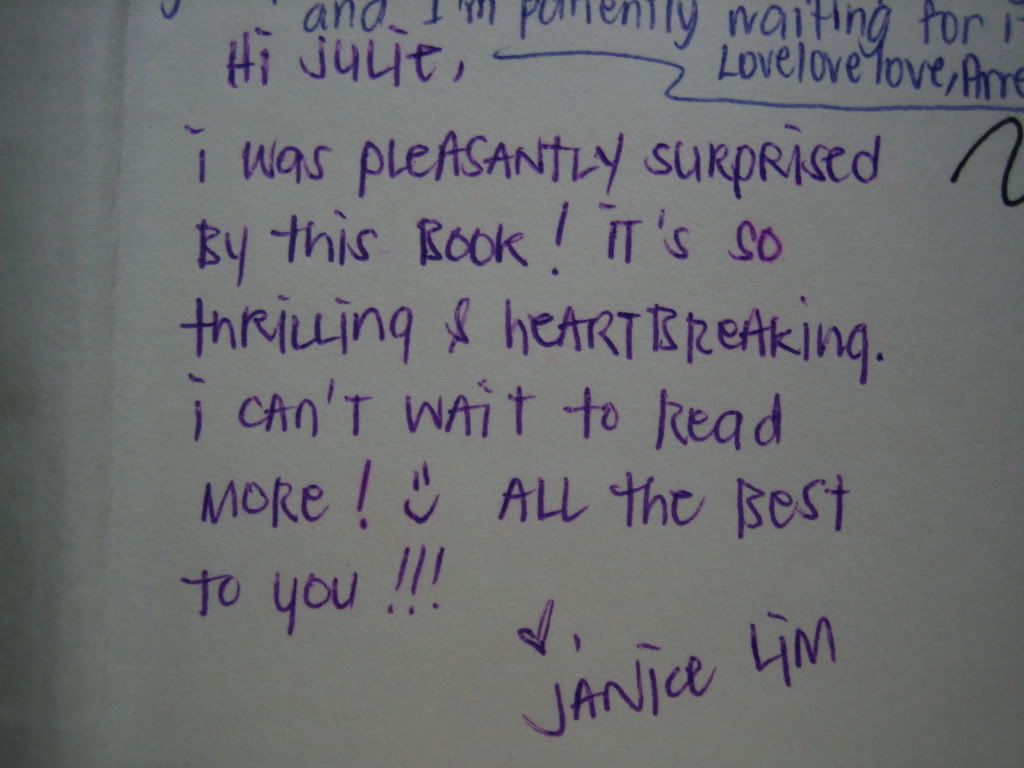 and I'm patiently waiting for
Lovelovelove,
Hi Julie,
i was pleasantly surprised
by this book! it's so
thrilling & heartbreaking.
i can't wait to read
more! ü all the best
to you!!!
♥,
Janice Lim